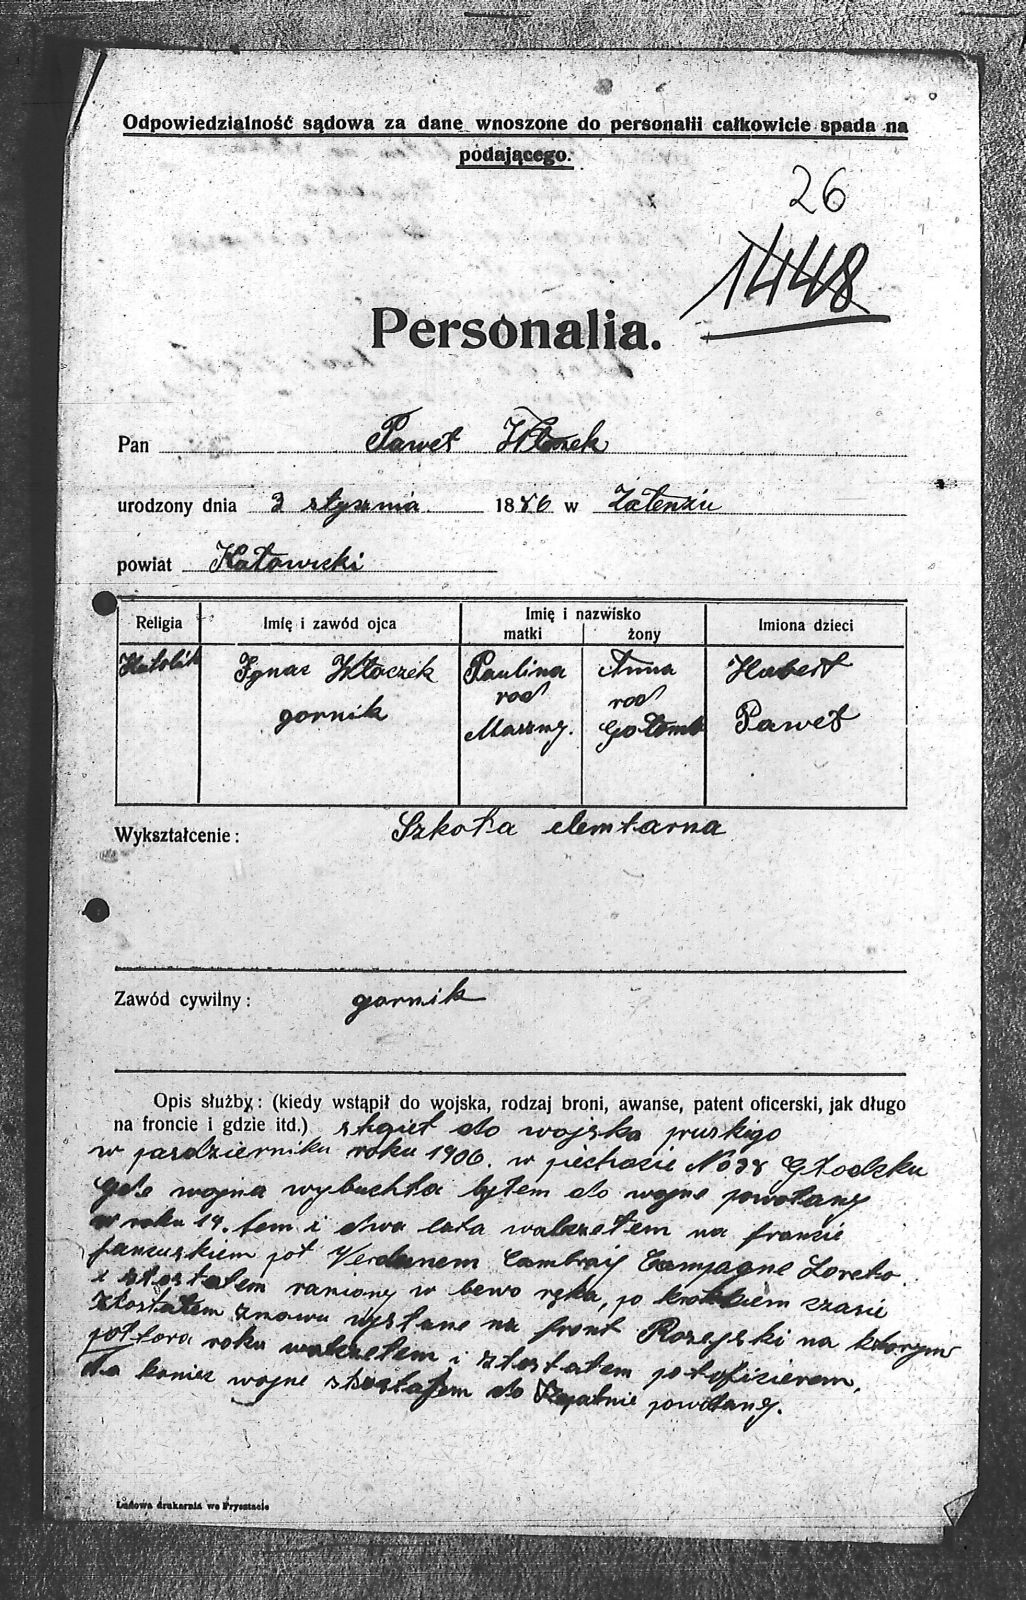 Odpowiedzialność sądowa za dane wnoszone do personalii całkowicie spada na
podającego.
26
1448
Personalia.
Pan Paweł
urodzony dnia 3 stycznia 1886 w Załenżu
powiat Katowicki
Religia Imię i zawód ojca Imię i nazwisko Imiona dzieci
matki żony
Katolik Ignac Włoczek Paulina Anna Hubert
gornik rod rod Paweł
Gołomb
Wykształcenie: Szkoła elemtarna
Zawód cywilny: gornik
Opis służby: (kiedy wstąpił do wojska, rodzaj broni, awanse, patent oficerski, jak długo
na froncie i gdzie itd.) do wojska pruskigo
w pazdzierniku roku 1906. w piechocie No 38 Głodzku
Gde wojna wybuchła byłem do wojne powołany
w roku 14. tem i dwa lata walczełem na froncie
francuskiem pot Verdunem Cambraij Campagne Loreto
i zostałem raniony w lewo ręka, po krotkiem czasie
zostałem znowu na front Rosejski na ktorym
połtora roku walczełem i zostałem potoficierem,
na koniec wojne do powołany.
Ludowa drukarnia we Frysztacie